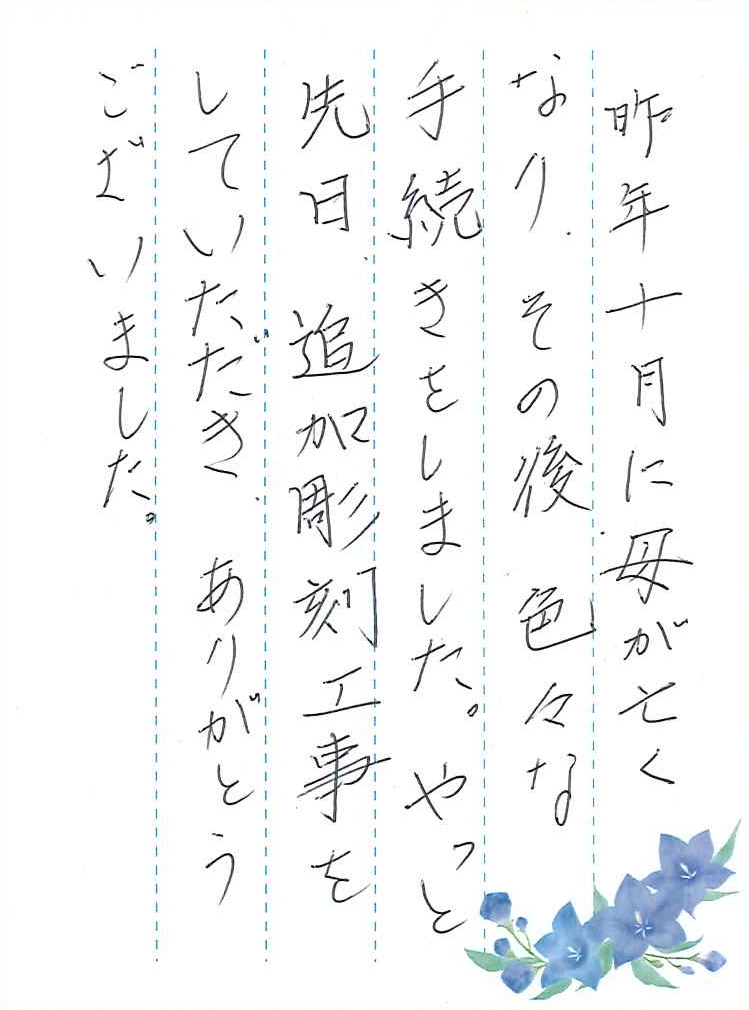 昨年十月に母が亡く
なり、その後色々な
手続きをしました。やっと
先日、追加彫刻工事を
していただき、ありがとう
ございました。